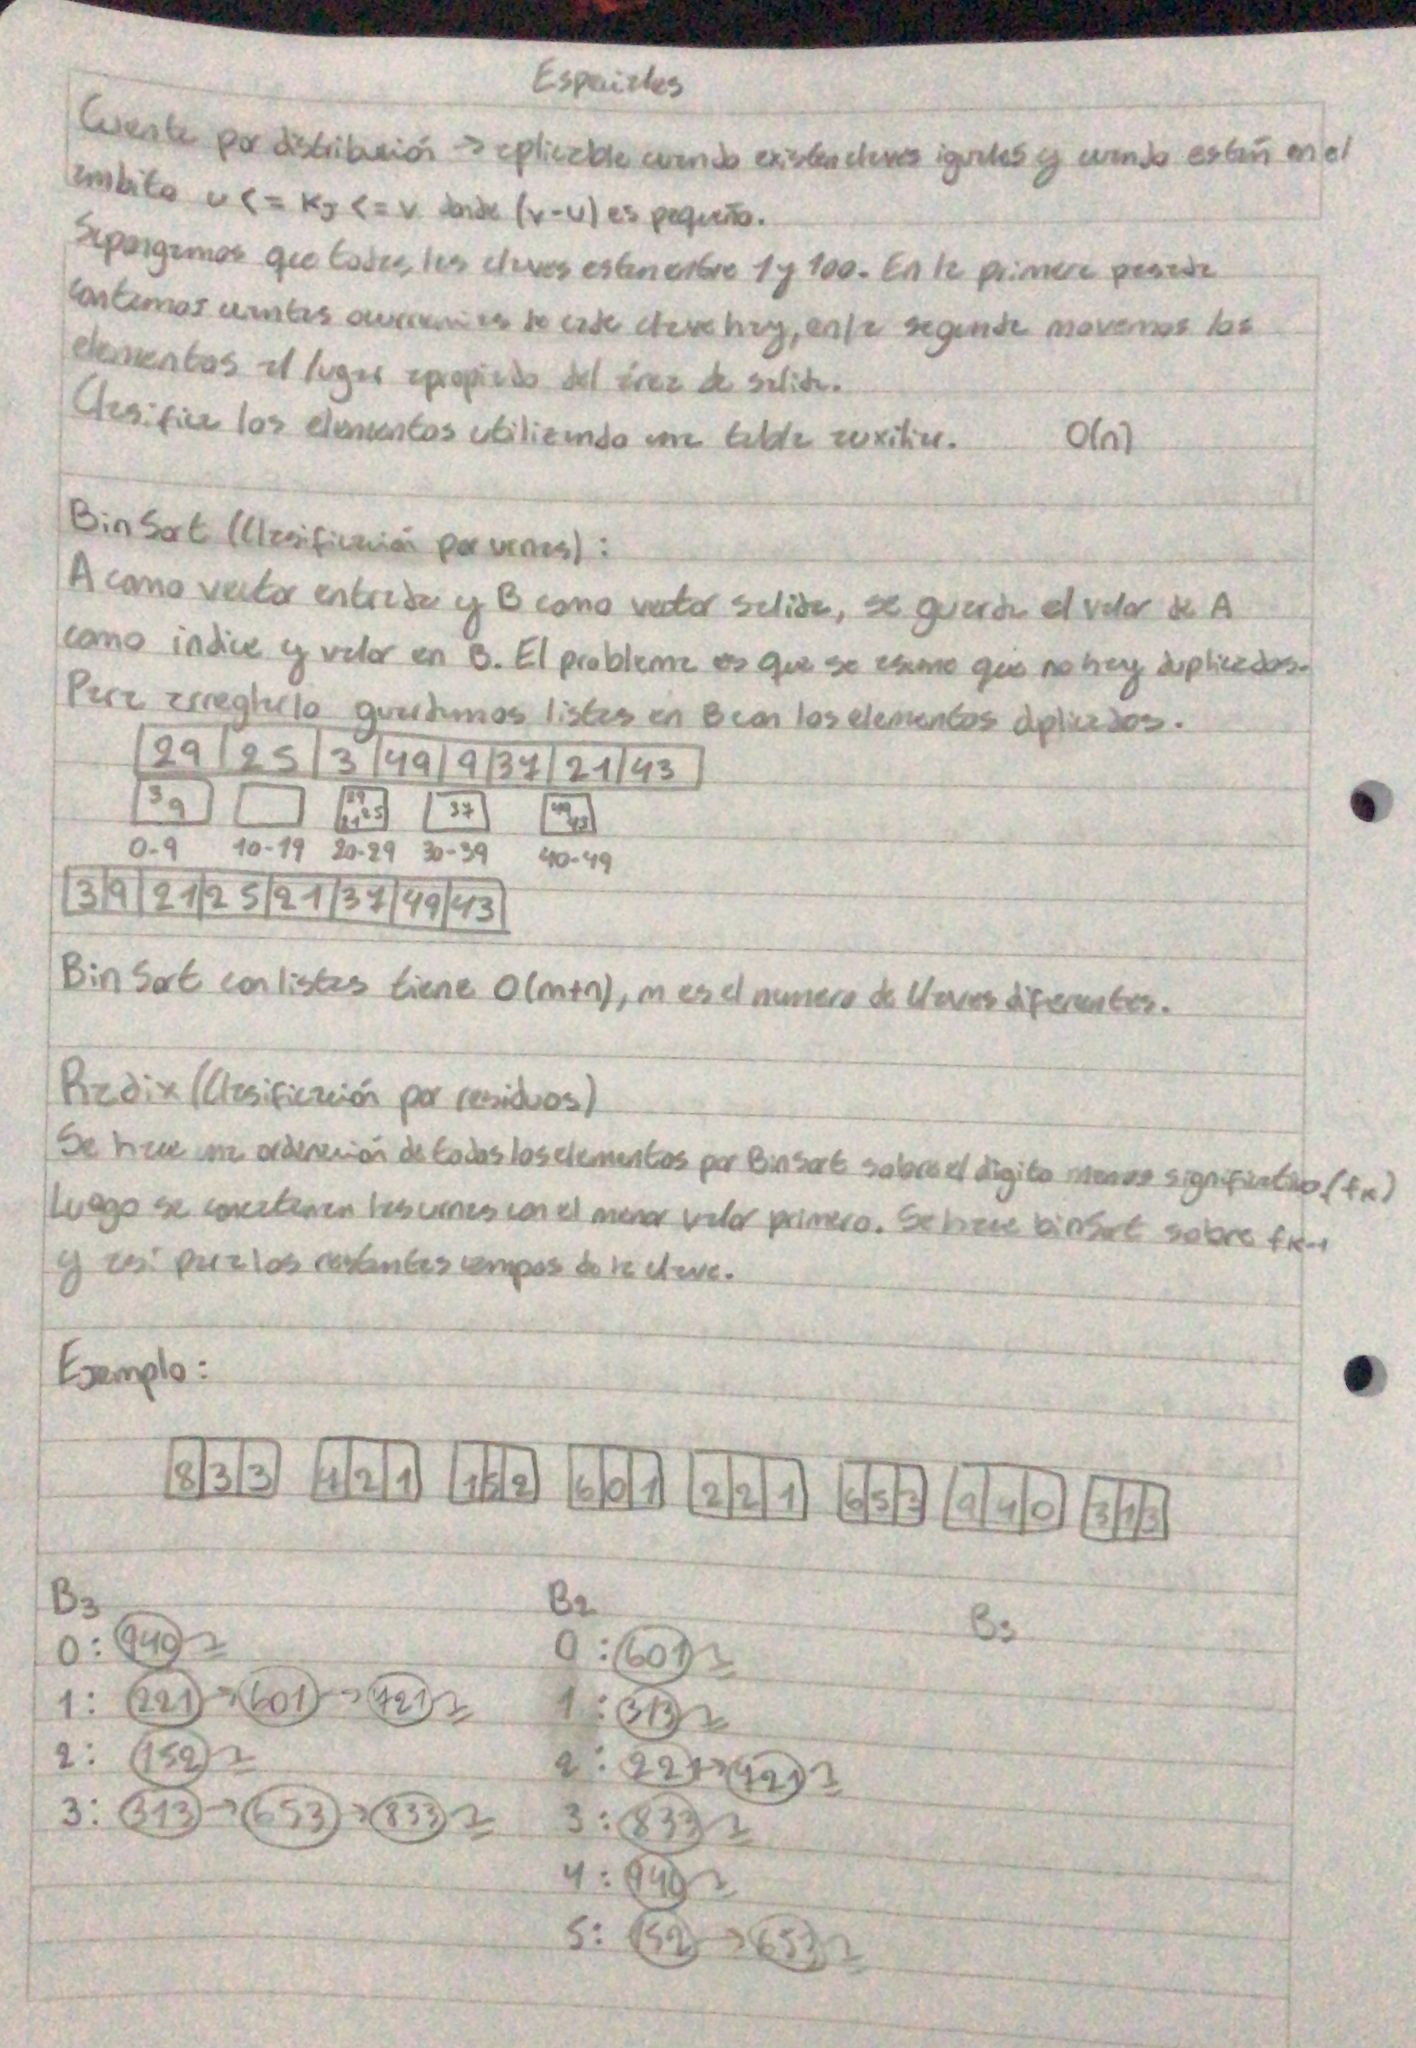 Espaiales
Cuenta por distribución -> aplicable cuando existen claves iguales y cuando estén en el
ambito u <= Kj <= v donde (v-u) es pequeño.
Supongamos que todas las claves esten entre 1 y 100. En la primera pasada
contamos cuantas ocurrencias de cada clave hay, en la segunda movemos los
elementos al lugar apropiado del área de salida.
Clasifica los elementos utilizando una tabla auxiliar. O(n)
BinSort (Clasificación por urnas):
A como vector entrada y B como vector salida, se guarda el valor de A
como indice y valor en B. El problema es que se asume que no hay duplicados.
Para arreglarlo guardamos listas en B con los elementos duplicados.
29 25 3 49 9 37 21 43
3 9 29 21 25 37 49 43
0-9 10-19 20-29 30-39 40-49
3 9 21 25 21 37 49 43
BinSort con listas tiene O(m+n), m es el numero de llaves diferentes.
Radix (Clasificación por residuos)
Se hace una ordenación de todos los elementos por BinSort sobre el digito menos significativo (fk)
Luego se concatenan las urnas con el menor valor primero. Se hace binSort sobre fk-1
y asi para los restantes campos de la clave.
Ejemplo:
833 421 152 601 221 653 940 313
B3 B2 B3
0: 940 0: 601
1: 221 -> 601 -> 421 1: 313
2: 152 2: 221 -> 421
3: 313 -> 653 -> 833 3: 833
4: 940
5: 152 -> 653